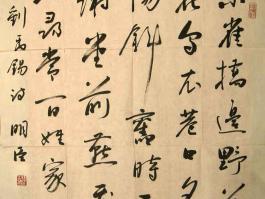 雀橋邊野
花烏衣巷口夕
陽斜舊時
謝堂前燕飛
尋常百姓家
劉禹錫詩明